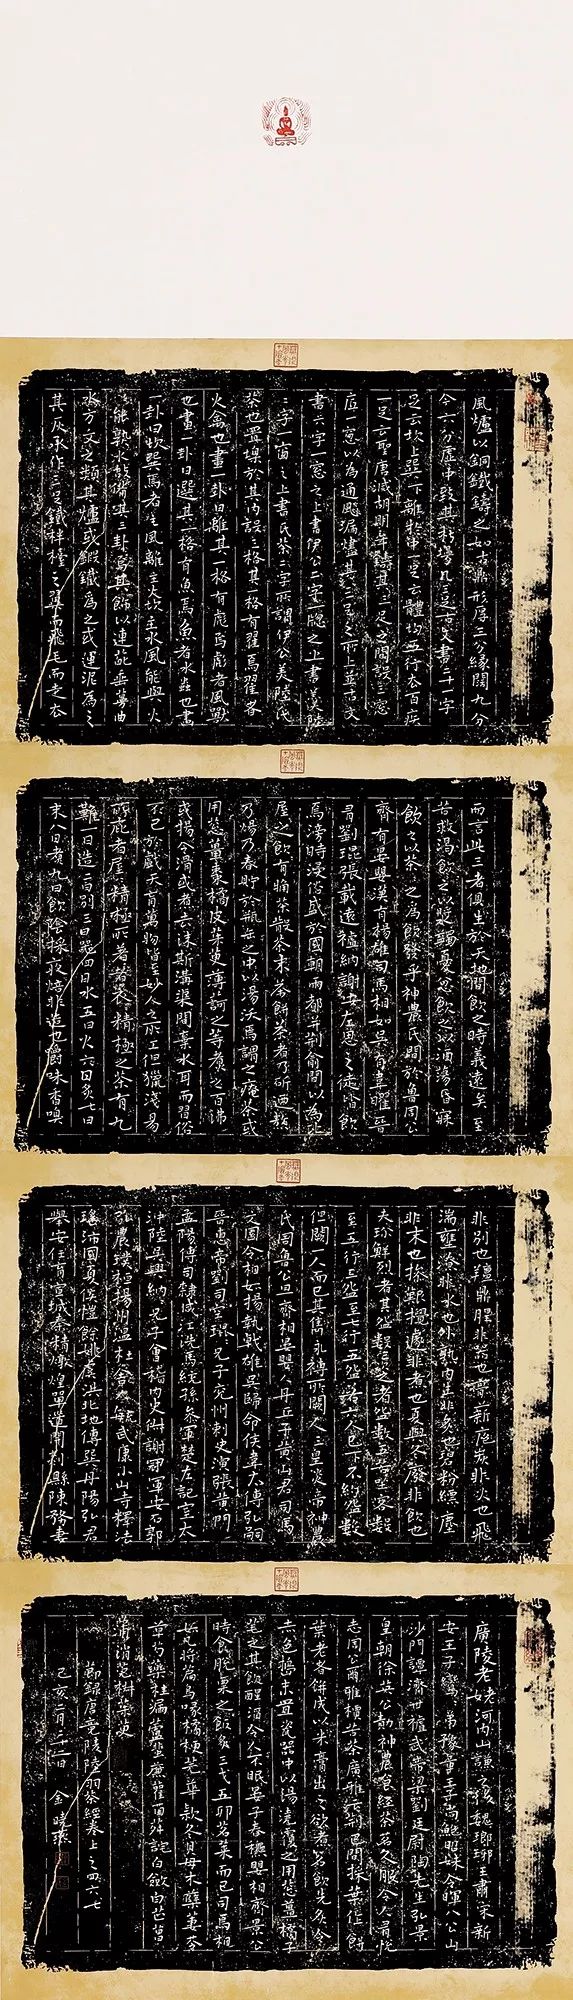 風爐以銅鐵鑄之如古鼎形厚三分緣闊九分
令六分虛中致其杇墁凡三足古文書二十一字
一足云坎上巽下離於中一足云體均五行去百疾
一足云聖唐滅胡明年鑄其三足之間設三窓
底一窓以為通飈漏燼之所上並古文
書六字一窓之上書伊公二字一窓之上書羹陸
二字一窓之上書氏茶二字所謂伊公羹陸氏
茶也置墆㙞於其內設三格其一格有翟焉翟者
火禽也畫一卦曰離其一格有彪焉彪者風獸
也畫一卦曰巽其一格有魚焉魚者水蟲也畫
一卦曰坎巽主風離主火坎主水風能興火
火能熟水故備其三卦焉其飾以連葩垂蔓曲
水方文之類其爐或鍛鐵為之或運泥為之
其灰承作三足鐵柈檯之翼而飛毛而走去
而言此三者俱生於天地間飲之時義遠矣至
若救渴飲之以漿蠲憂忿飲之以酒蕩昏寐
飲之以茶茶之為飲發乎神農氏聞於魯周公
齊有晏嬰漢有楊雄司馬相如吳有韋曜晉
有劉琨張載遠祖納謝安左思之徒皆飲
焉滂時浸俗盛於國朝兩都并荊俞間以為比
屋之飲飲有觕茶散茶末茶餅茶者乃斫乃熬
乃煬乃舂貯於瓶缶之中以湯沃焉謂之痷茶或
用葱薑棗橘皮茱萸薄荷之等煮之百沸
或揚令滑或煮去沫斯溝渠間棄水耳而習俗
不已於戲天育萬物皆有至妙人之所工但獵淺易
所庇者屋屋精極所著者衣衣精極茶有九
難一曰造二曰別三曰器四曰火五曰水六曰炙七曰
末八曰煮九曰飲陰採夜焙非造也嚼味香嗅
非別也羶鼎腥甌非器也膏薪庖炭非火也飛
湍壅潦非水也外熟內生非炙也碧粉縹塵
非末也操艱攪遽非煮也夏興冬廢非飲也
夫珍鮮馥烈者其盌數三次之者盌數五若坐客數
至五行三盌至七行五盌若六人已下不約盌數
但闕一人而已其雋永補所闕人三皇炎帝神農
氏周魯周公旦齊相晏嬰漢仙人丹丘子黃山君司馬
文園令相如揚執戟雄吳歸命侯韋太傅弘嗣
晉惠帝劉司空琨琨兄子兗州刺史演張黃門
孟陽傅司隸咸江洗馬統孫參軍楚左記室太
沖陸吳興納納兄子會稽內史俶謝冠軍安石郭
弘農璞桓揚州溫杜舍人毓武康小山寺釋法
瑤沛國夏侯愷餘姚虞洪北地傅巽丹陽弘君
舉安任育宣城秦精燉煌單道開剡縣陳務妻
廣陵老姥河內山謙之後魏瑯琊王肅宋新
安王子鸞鸞弟豫章王子尚鮑昭妹令暉八公山
沙門譚濟齊世祖武帝梁劉廷尉陶先生弘景
皇朝徐英公勣神農食經茶茗久服令人有力悅
志周公爾雅檟苦茶廣雅云荊巴間採葉作餅
葉老者餅成以米膏出之欲煮茗飲先炙令
赤色搗末置瓷器中以湯澆覆之用葱薑橘子
芼之其飲醒酒令人不眠晏子春秋嬰相齊景公
時食脫粟之飯炙三弋五卵茗菜而已司馬相
如凡將篇烏喙桔梗芫華款冬貝母木蘗蔞芩
草芍藥桂漏蘆蜚廉雚菌荈詫白斂白芷菖
蒲芒消莞椒茱萸
節錄唐竟陵陸羽茶經卷上之四六七
己亥二月二十二日 金曉琪